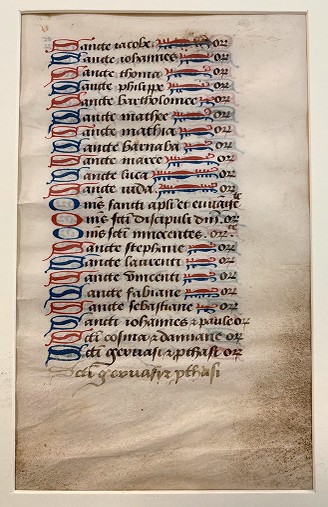 Sancte iacobe or
Sancte iohannes or
Sancte thoma or
Sancte philippe or
Sancte bartholomee or
Sancte mathee or
Sancte mathia or
Sancte barnaba or
Sancte marce or
Sancte luca or
Sancte iuda or
Oms sancti apli et euuāgeˡᵉ
Oms scti discipuli dni or
Oms scti innocentes or
Sancte stephane or
Sancte laurenti or
Sancte vincenti or
Sancte fabiane or
Sancte sebastiane or
Sancti iohannes ⁊ paule or
Scti cosma ⁊ damiane or
Scti geruasi ⁊ pthasi or
Scti geruasi ⁊ pthasi